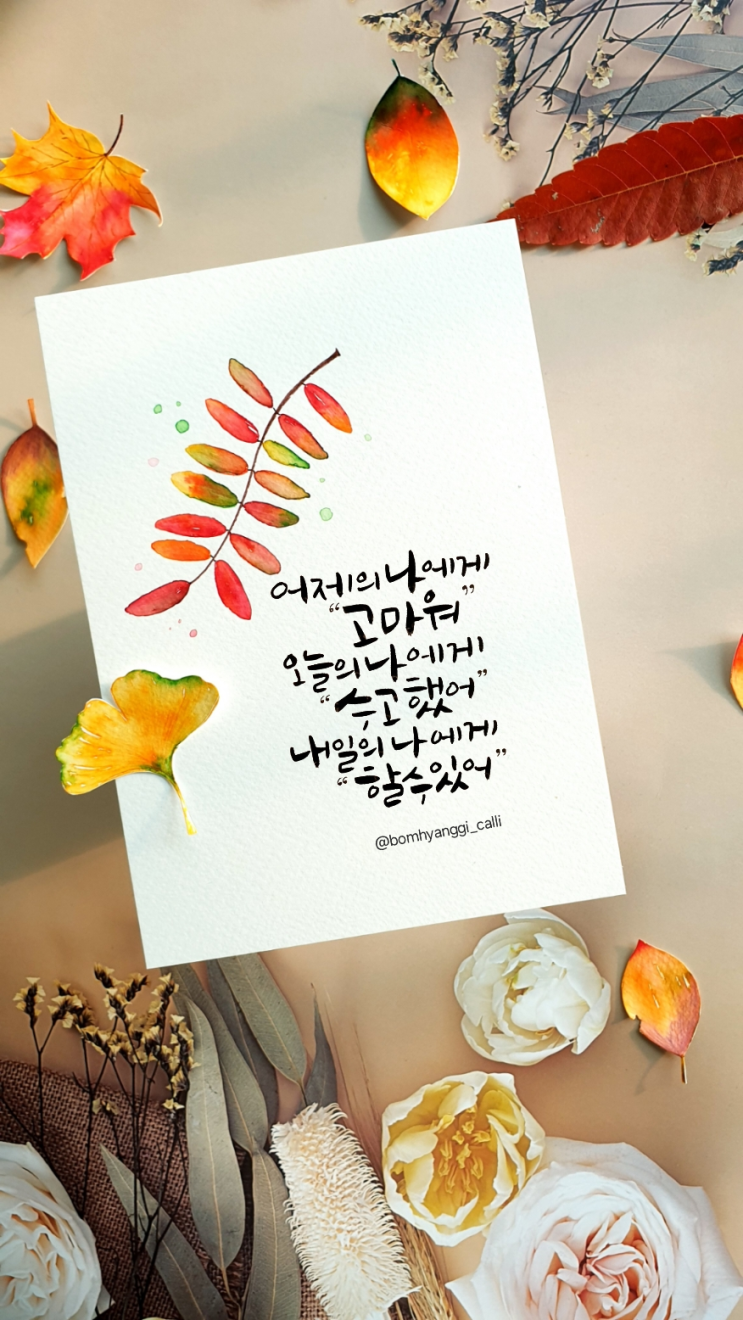 어제의 나에게
“고마워”
오늘의 나에게
“수고했어”
내일의 나에게
“할수있어”
@bomhyanggi_calli